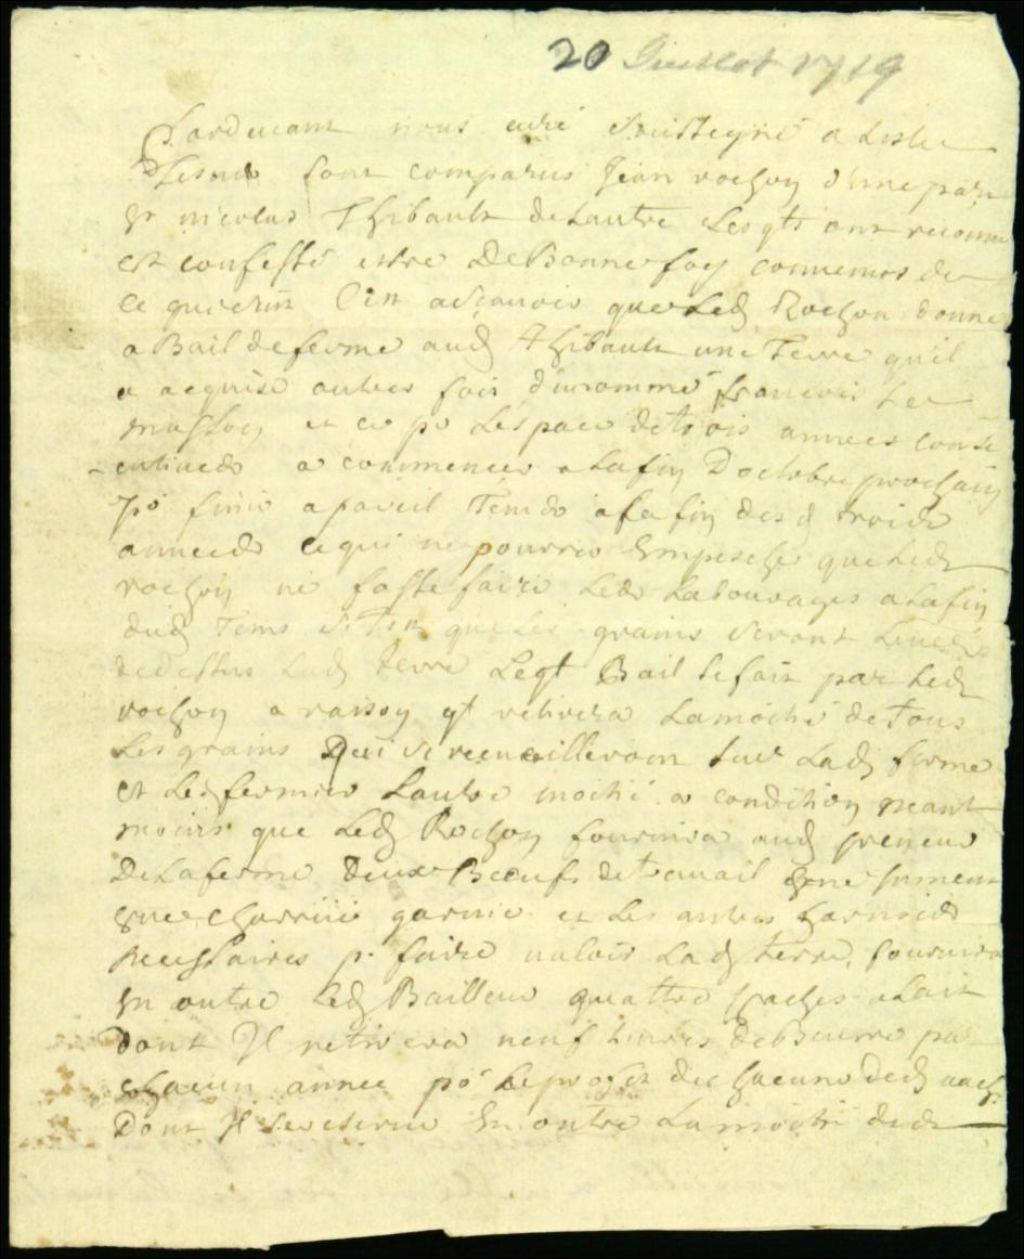 20 Juillet 1719
Pardevant nous curé soussigné a Lisle
Jesus sont comparus Jean rochon d'une part
Et nicolas Thibault de Lautre Lesqts ont reconnu
et confessé estre De Bonne foy convenus de
ce qui suit C'est adscavoir que Led Rochon donne
a Bail de ferme aud Thibault une Terre qu'il
a acquise autres fois d'un nommé francois Le
masson et ce po Lespace de trois années conse
cutives a commencer a La fin D octobre prochain
po finir a pareil Tems a la fin desd trois
années ce qui ne pourra Empescher que Led
rochon ne fasse faire Les Labourages a La fin
dud Tems si Tost que Les grains seront Levés
de dessus Lad terre Leqt Bail se fait par Led
rochon a raison qt retirera La moitié de Tous
Les grains Qui se recueilleront sur Lad ferme
et Led fermier Lautre moitié a condition neant
moins que Led Rochon fournira aud preneur
De La ferme deux Boeufs de travail Une jument
Une charrüe garnie et Les autres harnois
necessaires p. faire valoir Lad terre, fournira
En outre Led Bailleur quattre vaches a Lait
Dont Il retirera neuf Livres de Beurre par
chacun année po Le profit de chacune desd vach
Dont Il se reserve En outre La moitié des